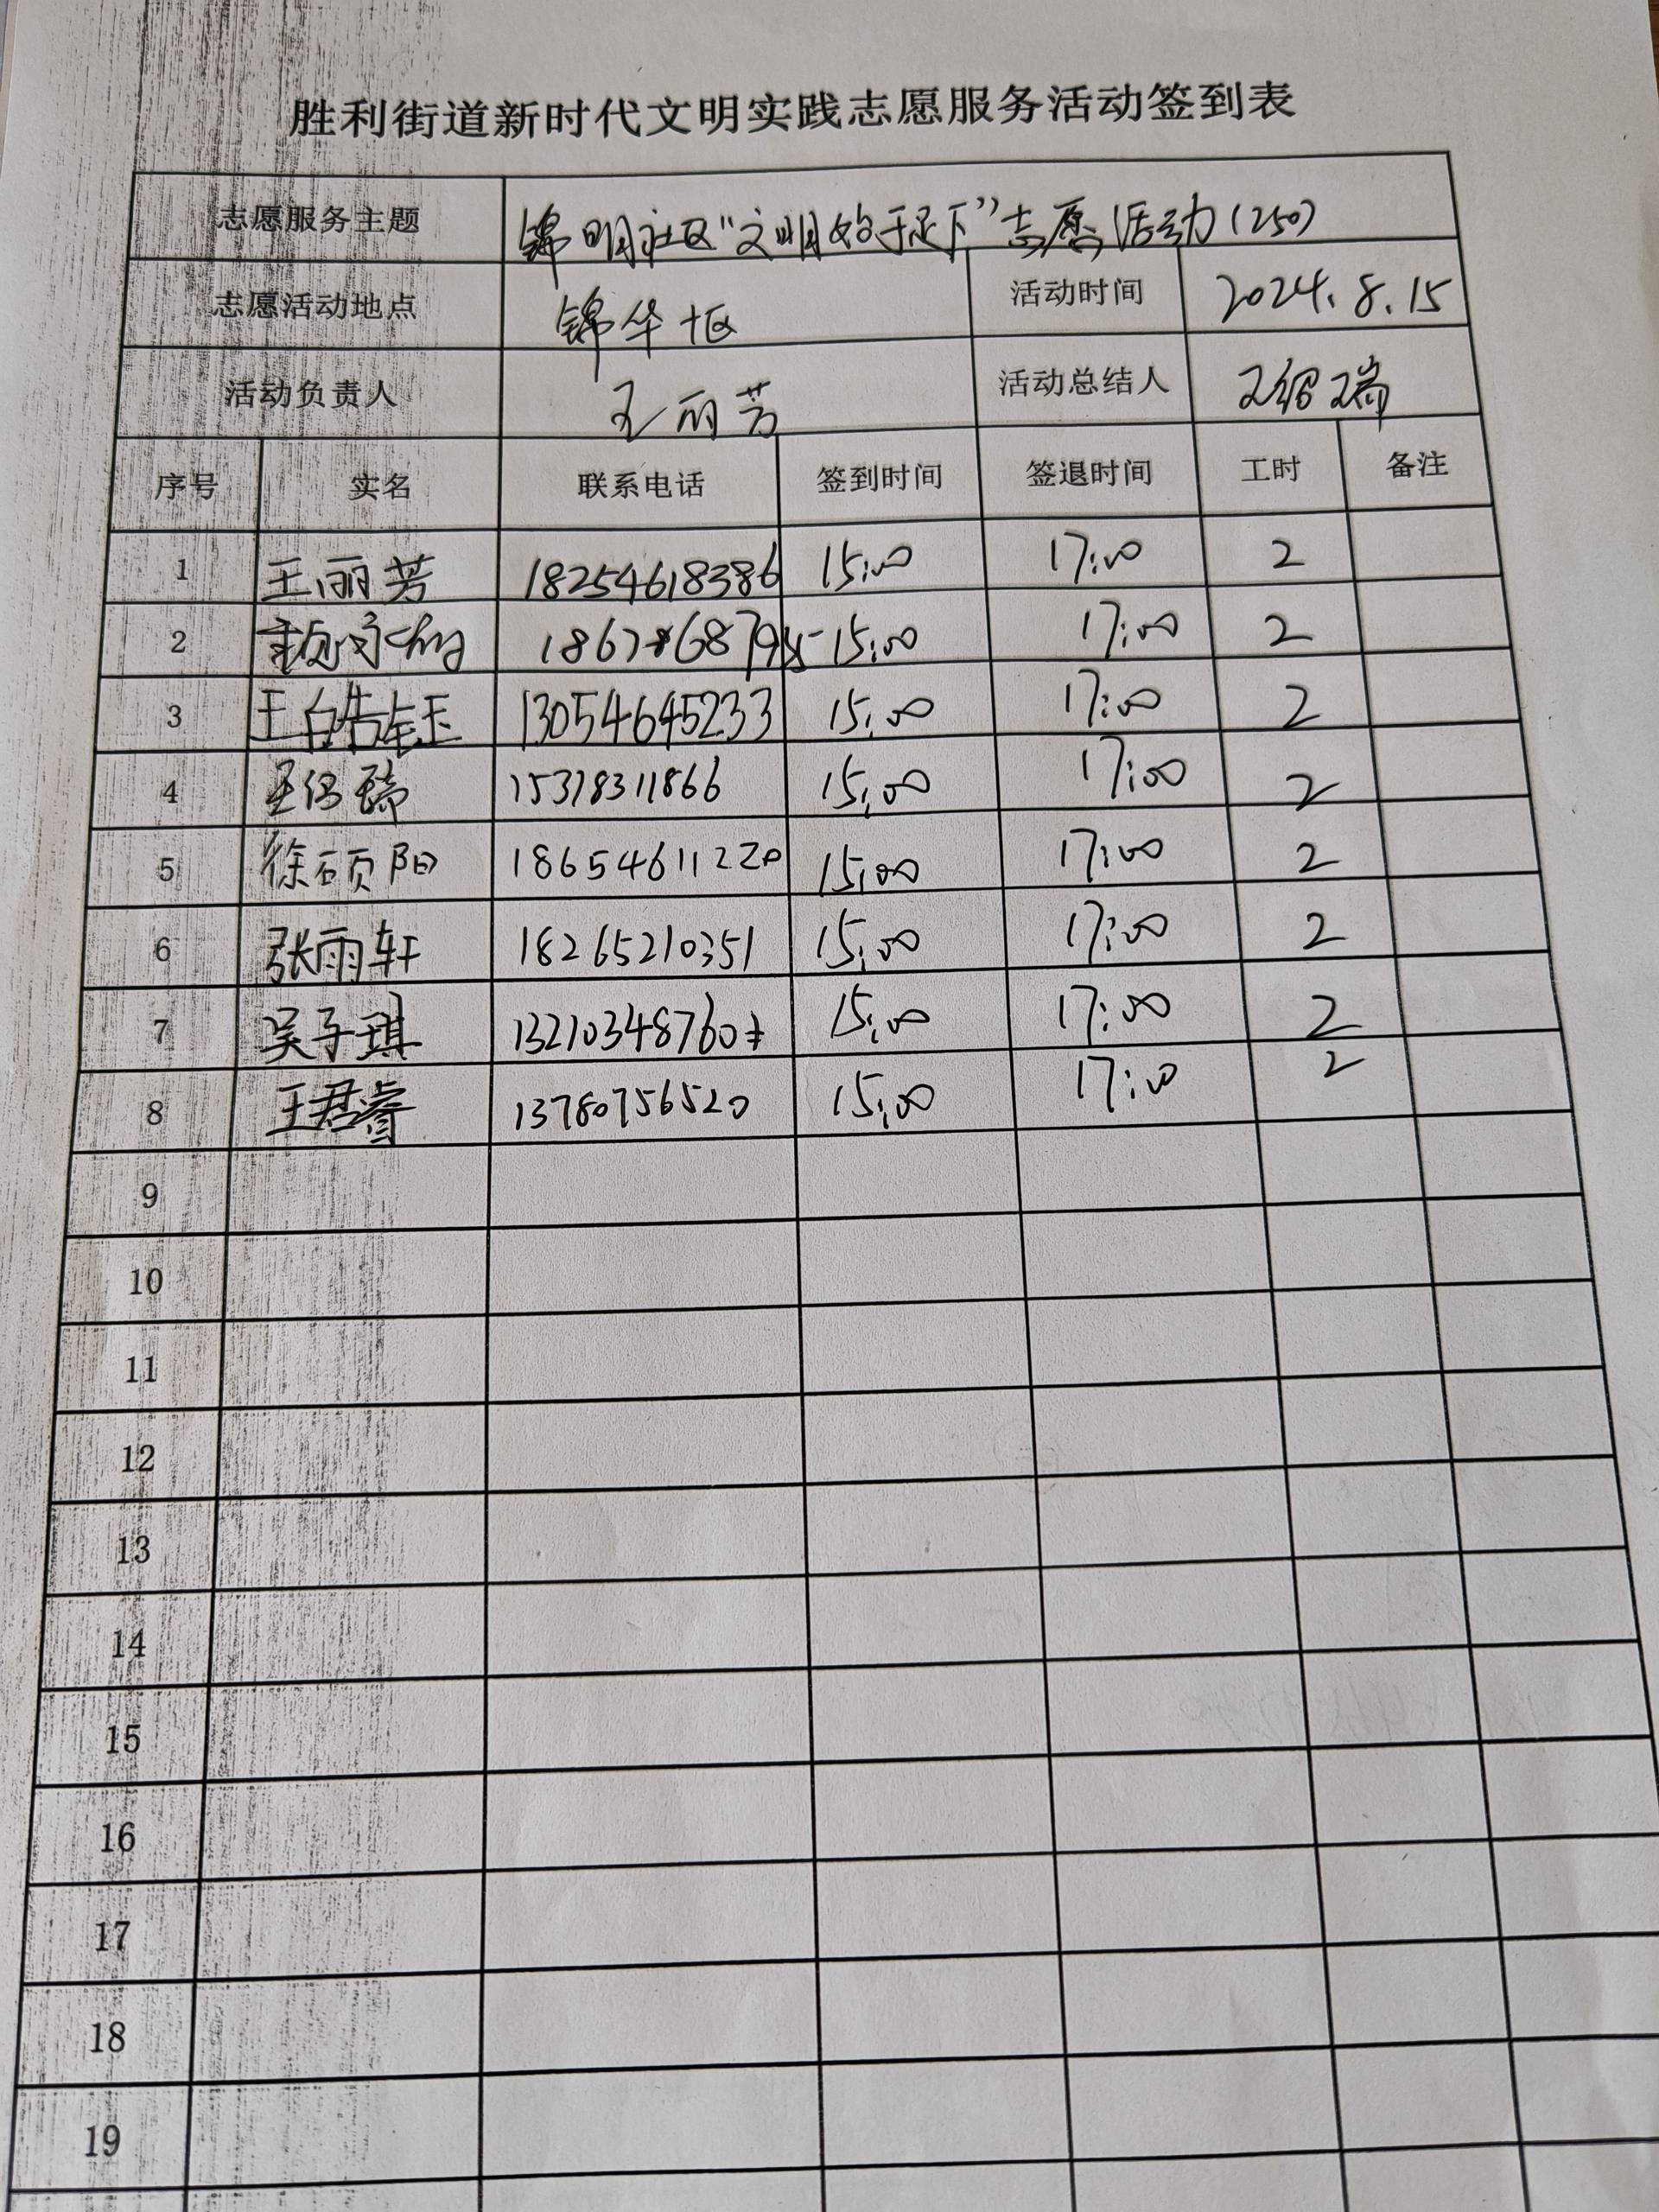 胜利街道新时代文明实践志愿服务活动签到表
志愿服务主题 锦明社区“文明始于足下”志愿活动(250)
志愿活动地点 锦华十区 活动时间 2024.8.15
活动负责人 王丽芳 活动总结人 王绍瑞
序号 实名 联系电话 签到时间 签退时间 工时 备注
1 王丽芳 18254618386 15:00 17:00 2
2 15:00 17:00 2
3 王 13054645233 15:00 17:00 2
4 王绍瑞 15378311866 15:00 17:00 2
5 徐硕阳 18654611220 15:00 17:00 2
6 张雨轩 18265210351 15:00 17:00 2
7 吴子琪 13210348760 15:00 17:00 2
8 王君睿 13780756520 15:00 17:00 2
9
10
11
12
13
14
15
16
17
18
19